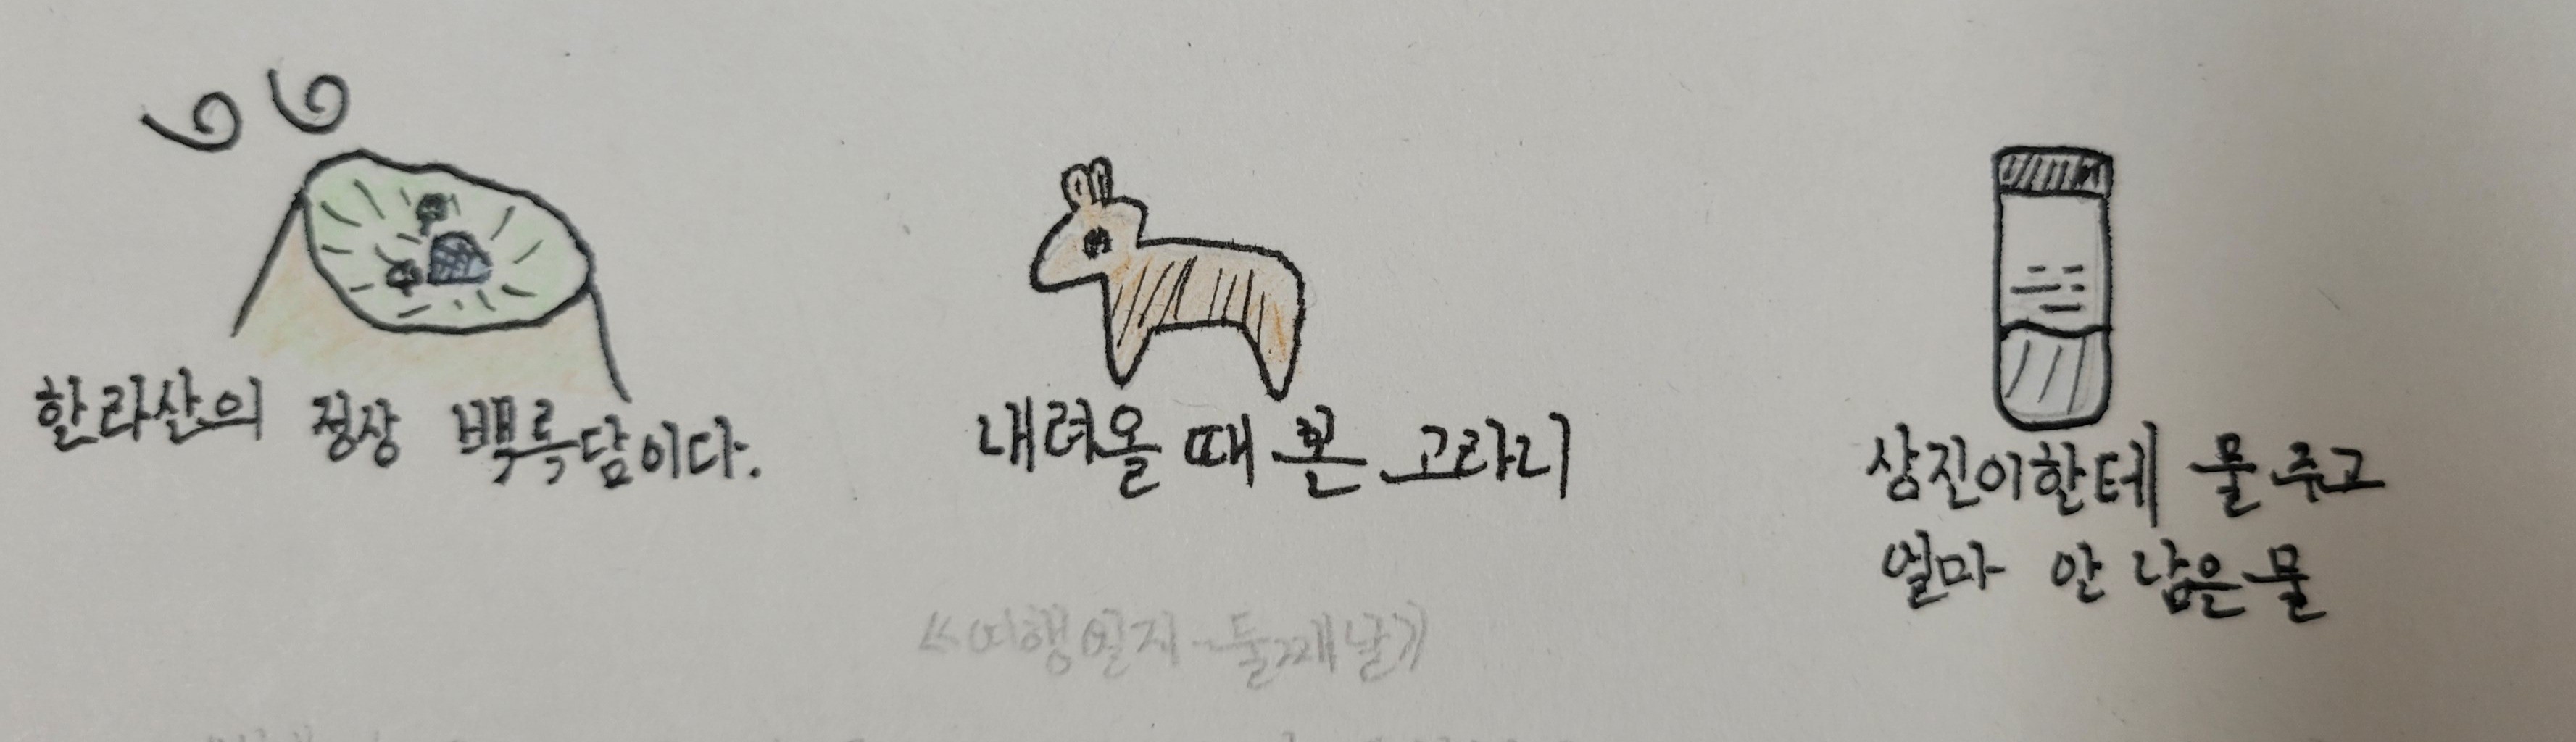 한라산의 정상 백록담이다.
내려올 때 본 고라니
상진이한테 물 주고
얼마 안 남은 물
<<여행일지-둘째날>>